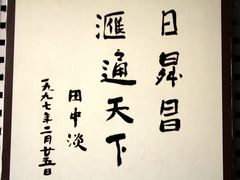 日昇昌
滙通天下
田中淡
一九九七年二月廿五日